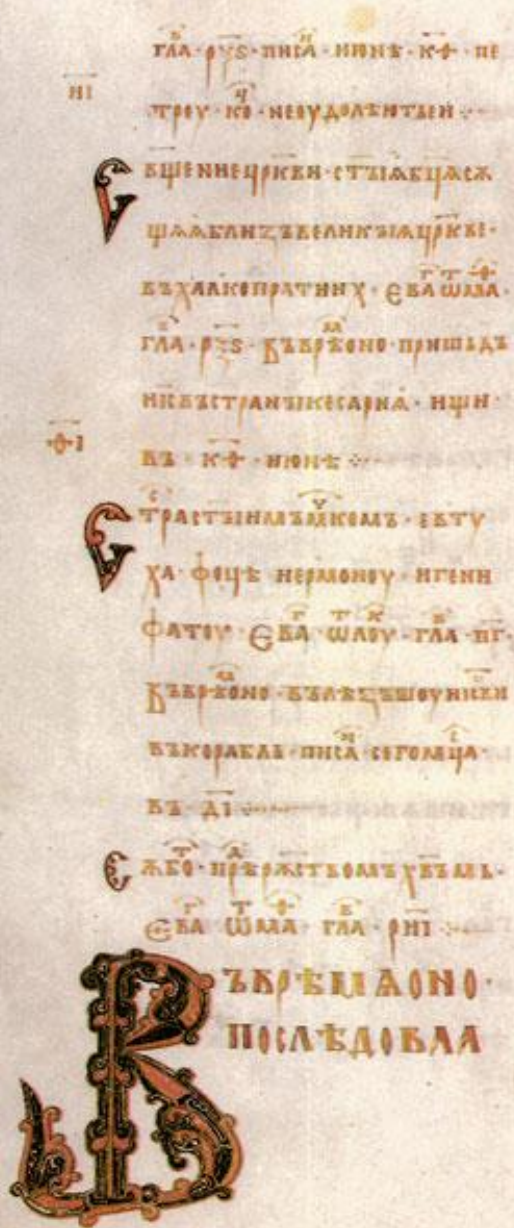 гла · рѯѕ · писа · июнѣ · к҃ѳ · пе
н҃і
троу · ко · неоудолѣнтѣи ·:·
Е вщенне цркви · стыѧ бцѧ сѫ
щѧѧ близъ великыѧ цркве ·
въ халкопратиих · ева ѿ ма ·
гла · рѯѕ · Въ врѣ оно пришьдъ
і҃с въ страны кесариѧ · ищи ·
ѳ҃і
въ · к҃ѳ · июнѣ ·:·
С трастьникъмъ · евту
ха фоцѣ и ермоноу · и гени
фатоу · Ева ѿ лоу · гла · п҃г ·
Въ врѣ оно · вълѣзъшоу і҃сви
въ корабль · писа сего мца ·
въ д҃і
С ѫбо · прѣ ржствомь хвъмь ·
Ева ѿ ма · гла · рн҃і ·:·
Въ врѣмѧ оно ·
послѣдовла